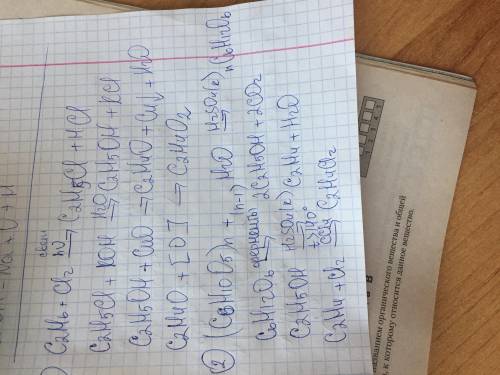 1) C2H6 + Cl2 hν → C2H5Cl + HCl
свет
C2H5Cl + KOH H2O → C2H5OH + KCl
C2H5OH + CuO → C2H4O + Cu↓ + H2O
C2H4O + [O] → C2H4O2
2) (C6H10O5)n + (n-1) H2O H2SO4(к) → nC6H12O6
C6H12O6 ферменты → 2C2H5OH + 2CO2
C2H5OH H2SO4(к) → C2H4 + H2O
C2H4 + Cl2 CCl4 → C2H4Cl2
названием органического вещества и общей
, к которому относится данное вещество.